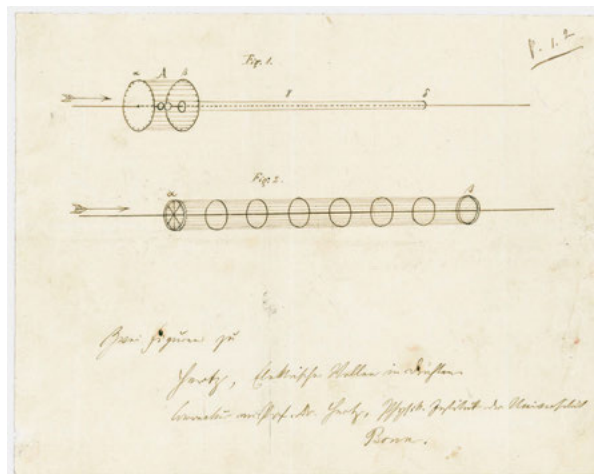 P. 1.2
Fig. 1.
α A β γ δ
Fig. 2.
α β
Zwei Figuren zu
Hertz, Elektrische Wellen in Drähten
Correctur an Prof. Dr. Hertz, Physik. Institut der Universität
Bonn.